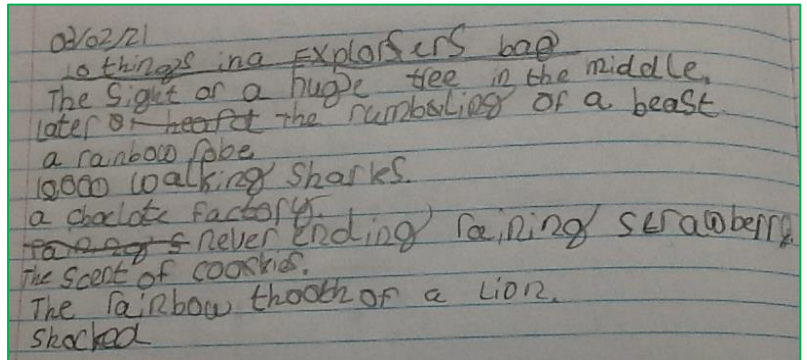 03/02/21
10 things in a Explorsers bag
The Sight of a hugde tree in the middle,
later I heard the rumboling of a beast
a rainbow robe
10,000 walking Sharks.
a choclote Factory.
never Ending raining strawberry
The Scent of cooskies.
The rainbow thooth of a Lion.
Shocked